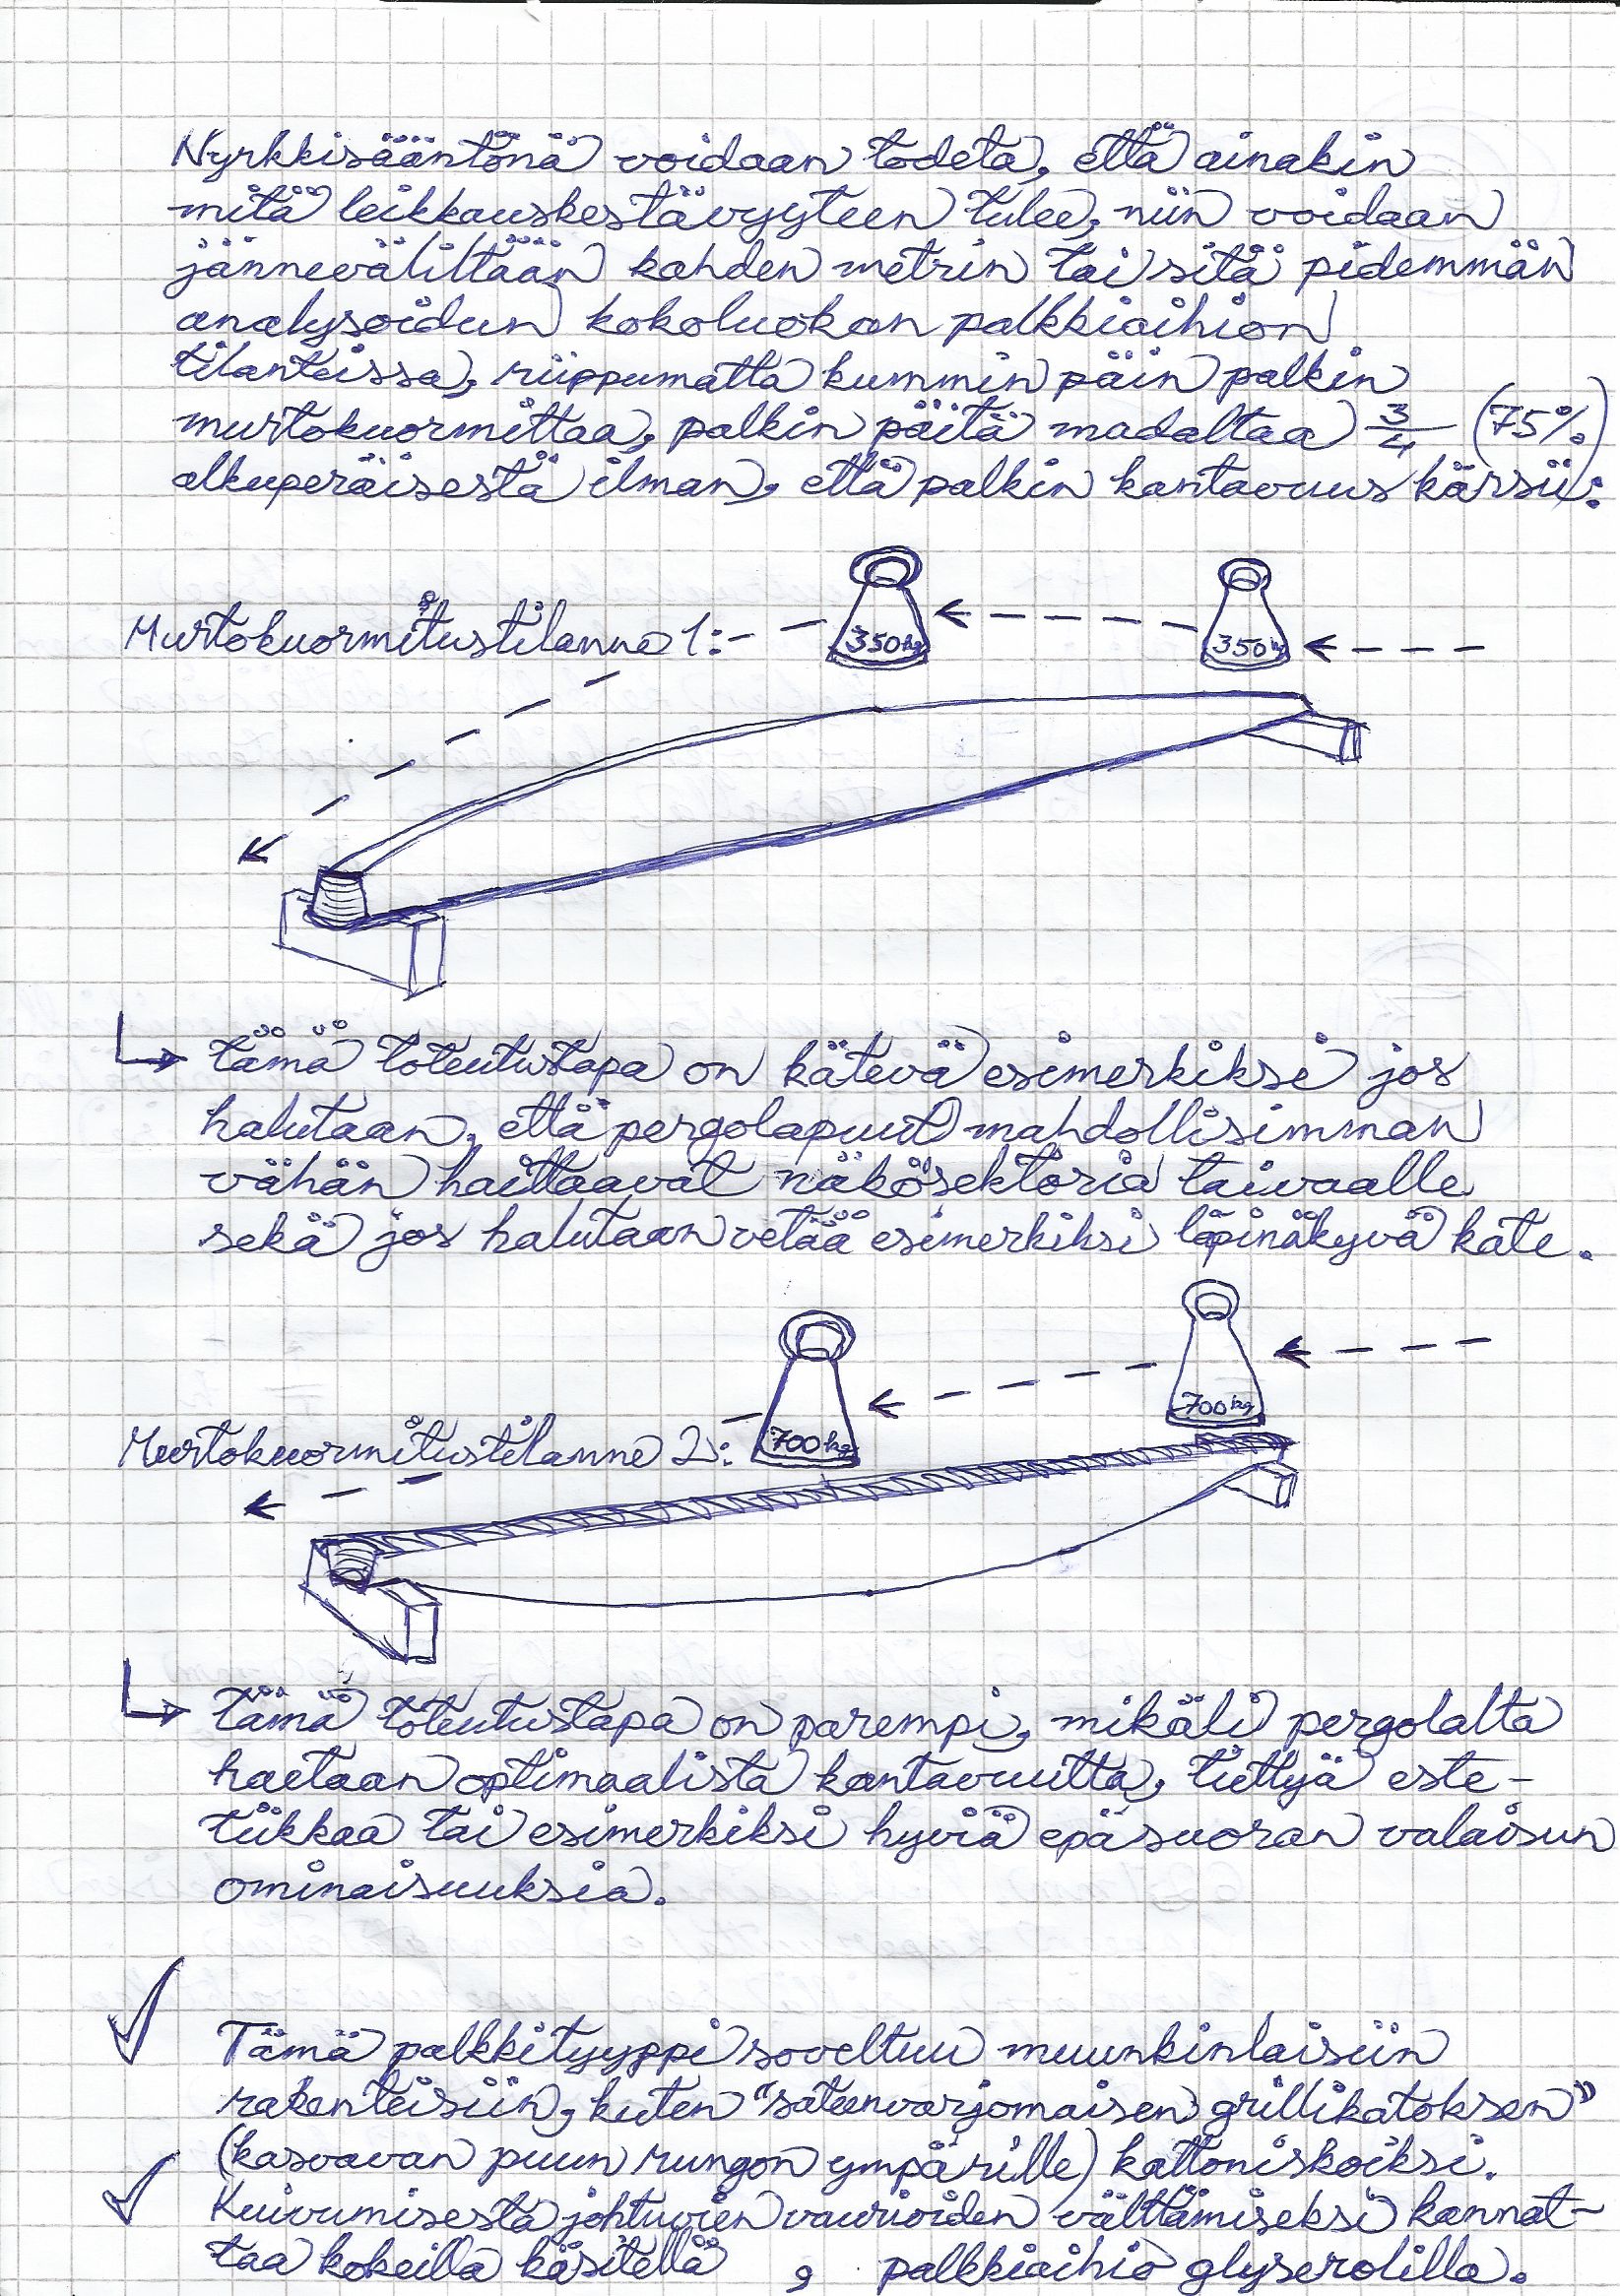 Nyrkkisääntönä voidaan todeta, että ainakin
mitä leikkauskestävyyteen tulee, niin voidaan
jänneväliltään kahden metrin tai sitä pidemmän
analysoidun kokoluokan palkkiaihion
tilanteissa, riippumatta kummin päin palkin
murtokuormittaa, palkin päitä madaltaa 3/4 (75%)
alkuperäisestä ilman, että palkin kantavuus kärsii:
350kg
350kg
Murtokuormitustilanne 1:
tämä toteutustapa on kätevä esimerkiksi jos
halutaan, että pergolapuut mahdollisimman
vähän haittaavat näkösektoria taivaalle
sekä jos halutaan vetää esimerkiksi läpinäkyvä kate.
700kg
700kg
Murtokuormitustilanne 2:
tämä toteutustapa on parempi, mikäli pergolalta
haetaan optimaalista kantavuutta, tiettyä este-
tiikkaa tai esimerkiksi hyviä epäsuoran valaisun
ominaisuuksia.
Tämä palkkityyppi soveltuu muunkinlaisiin
rakenteisiin, kuten "sateenvarjomaisen grillikatoksen"
(kasvavan puun rungon ympärille) kattoniskoiksi.
Kuivumisesta johtuvien vaurioiden välttämiseksi kannat-
taa kokeilla käsitellä , palkkiaihio glyserolilla.